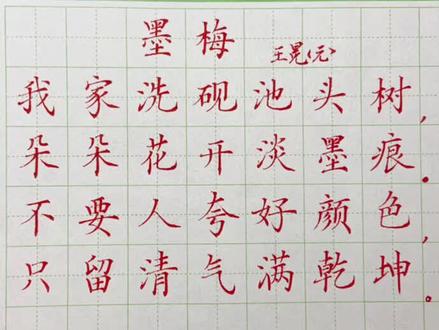 墨梅
王冕(元)
我家洗砚池头树,
朵朵花开淡墨痕。
不要人夸好颜色,
只留清气满乾坤。